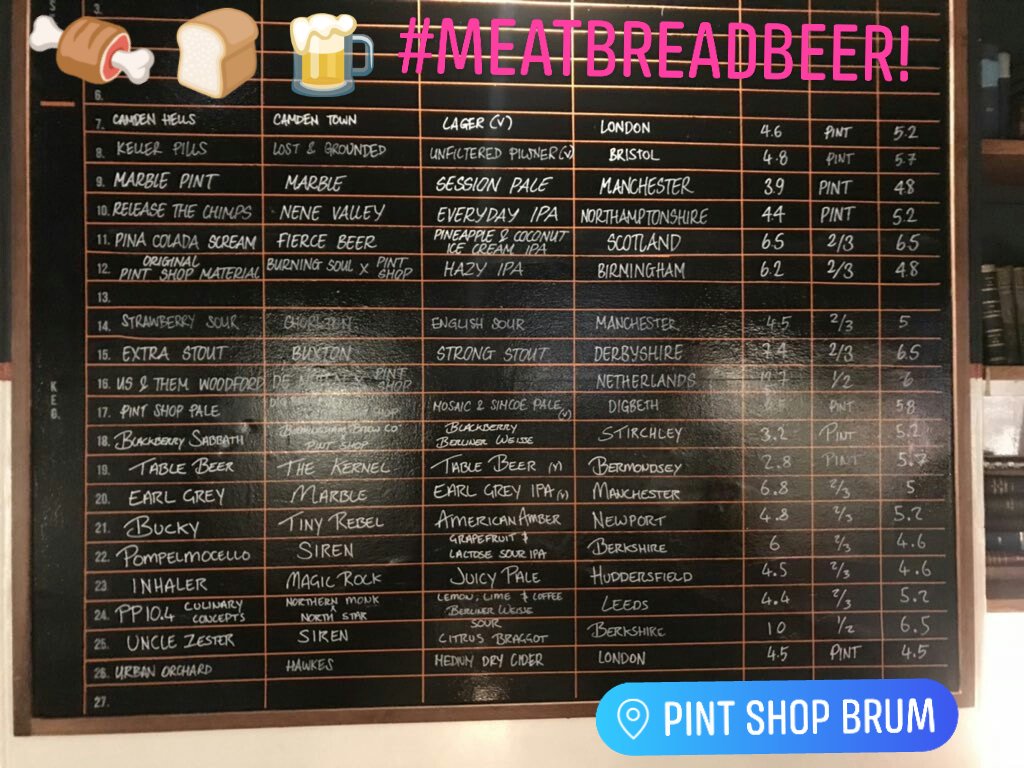 #MEATBREADBEER!
3.
6.
7. CAMDEN HELLS CAMDEN TOWN LAGER (V) LONDON 4.6 PINT 5.2
8. KELLER PILLS LOST & GROUNDED UNFILTERED PILSNER (V) BRISTOL 4.8 PINT 5.7
9. MARBLE PINT MARBLE SESSION PALE MANCHESTER 3.9 PINT 4.8
10. RELEASE THE CHIMPS NENE VALLEY EVERYDAY IPA NORTHAMPTONSHIRE 4.4 PINT 5.2
11. PINA COLADA SCREAM FIERCE BEER PINEAPPLE & COCONUT ICE CREAM IPA SCOTLAND 6.5 2/3 6.5
12. ORIGINAL PINT SHOP MATERIAL BURNING SOUL X PINT SHOP HAZY IPA BIRMINGHAM 6.2 2/3 4.8
13.
14. STRAWBERRY SOUR CHORLTON ENGLISH SOUR MANCHESTER 4.5 2/3 5
15. EXTRA STOUT BUXTON STRONG STOUT DERBYSHIRE 7.4 2/3 6.5
KEG.
16. US & THEM WOODFORD DE PINT SHOP NETHERLANDS 1/2 6
17. PINT SHOP PALE SHOP MOSAIC & SIMCOE PALE (V) DIGBETH PINT 5.8
18. BLACKBERRY SABBATH BIRMINGHAM BREW CO PINT SHOP BLACKBERRY BERLINER WEISSE STIRCHLEY 3.2 PINT 5.2
19. TABLE BEER THE KERNEL TABLE BEER (V) BERMONDSEY 2.8 PINT 5.7
20. EARL GREY MARBLE EARL GREY IPA (V) MANCHESTER 6.8 2/3 5
21. BUCKY TINY REBEL AMERICAN AMBER NEWPORT 4.8 2/3 5.2
22. POMPELMOCELLO SIREN GRAPEFRUIT & LACTOSE SOUR IPA BERKSHIRE 6 2/3 4.6
23 INHALER MAGIC ROCK JUICY PALE HUDDERSFIELD 4.5 2/3 4.6
24. PP10.4 CULINARY CONCEPTS NORTHERN MONK X NORTH STAR LEMON, LIME & COFFEE BERLINER WEISSE LEEDS 4.4 2/3 5.2
25. UNCLE ZESTER SIREN SOUR CITRUS BRAGGOT BERKSHIRE 10 1/2 6.5
26. URBAN ORCHARD HAWKES MEDIUM DRY CIDER LONDON 4.5 PINT 4.5
27.
PINT SHOP BRUM